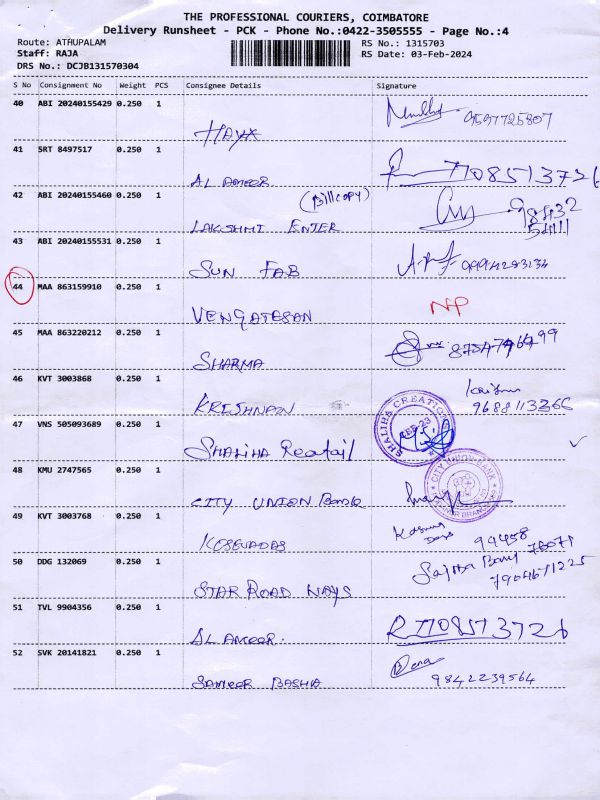 THE PROFESSIONAL COURIERS, COIMBATORE
Delivery Runsheet - PCK - Phone No.:0422-3505555 - Page No.:4
Route: ATHUPALAM
RS No.: 1315703
Staff: RAJA
RS Date: 03-Feb-2024
DRS No.: DCJB131570304
S No Consignment No Weight PCS Consignee Details Signature
40 ABI 20240155429 0.250 1
9597725807
HAYX
41 SRT 8497517 0.250 1
7708513726
AL AMEER
42 ABI 20240155460 0.250 1
(B)11COPY)
98432
54111
LAKSHMI ENTER
43 ABI 20240155531 0.250 1
SUN FAB
44 MAA 863159910 0.250 1
NP
VENGATESAN
45 MAA 863220212 0.250 1
SHARMA
46 KVT 3003868 0.250 1
9688113366
KRESHNAN
47 VNS 505093689 0.250 1
SHALIHA CREATION
SHALIHA Reatail
48 KMU 2747565 0.250 1
CITY UNION BANK
CITY UNION Bank
49 KVT 3003768 0.250 1
99458
76071
KESEVADAS
50 DDG 132069 0.250 1
Sajitha Banu
7904671225
STAR ROAD WAYS
51 TVL 9904356 0.250 1
7708513726
AL AMEER.
52 SVK 20141821 0.250 1
9842239564
SAMEER BASHA